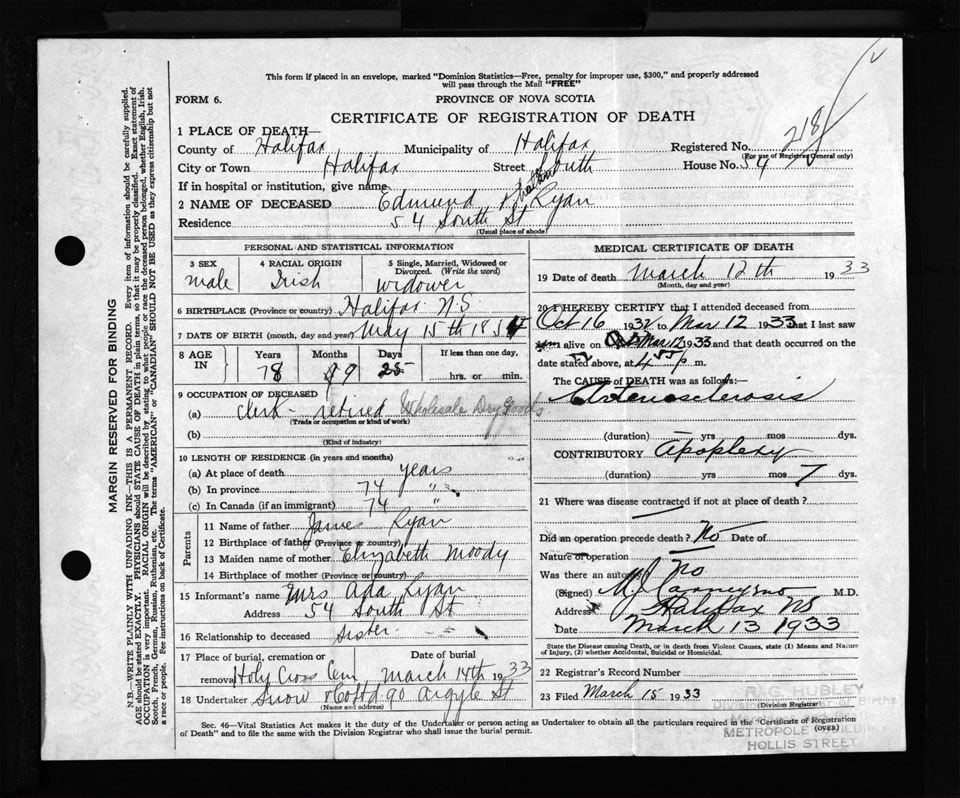 This form if placed in an envelope, marked "Dominion Statistics—Free, penalty for improper use, $300," and properly addressed
will pass through the Mail "FREE"
FORM 6.
PROVINCE OF NOVA SCOTIA
CERTIFICATE OF REGISTRATION OF DEATH
218
1 PLACE OF DEATH—
County of Halifax Municipality of Halifax Registered No.
(For use of Registrar General only)
City or Town Halifax Street South House No. 54
If in hospital or institution, give name
2 NAME OF DECEASED Edmund Ryan
Residence 54 South St
(Usual place of abode)
PERSONAL AND STATISTICAL INFORMATION
3 SEX
male
4 RACIAL ORIGIN
Irish
5 Single, Married, Widowed or
Divorced. (Write the word)
widower
6 BIRTHPLACE (Province or country) Halifax N.S.
7 DATE OF BIRTH (month, day and year) May 15th 1854
8 AGE
IN
Years Months Days If less than one day,
78 9 25 hrs. or min.
9 OCCUPATION OF DECEASED
(a) Clerk - retired Wholesale Dry Goods
(Trade or occupation or kind of work)
(b)
(Kind of industry)
10 LENGTH OF RESIDENCE (in years and months)
(a) At place of death years
(b) In province 74 "
(c) In Canada (if an immigrant) 74 "
Parents
11 Name of father James Ryan
12 Birthplace of father (Province or country)
13 Maiden name of mother Elizabeth Moody
14 Birthplace of mother (Province or country)
15 Informant's name Mrs Ada Ryan
Address 54 South St
16 Relationship to deceased Sister
17 Place of burial, cremation or
removal Holy Cross Cem
Date of burial
March 14th 1933
18 Undertaker Snow & Co Ltd 90 Argyle St
(Name and address)
MEDICAL CERTIFICATE OF DEATH
19 Date of death March 12th 1933
(Month, day and year)
20 I HEREBY CERTIFY that I attended deceased from
Oct 16 1932 to Mar 12 1933 that I last saw
alive on Mar 12 1933 and that death occurred on the
date stated above, at m.
The CAUSE of DEATH was as follows:—
Arteriosclerosis
(duration) yrs mos dys.
CONTRIBUTORY Apoplexy
(duration) yrs mos 7 dys.
21 Where was disease contracted if not at place of death?
Did an operation precede death? No Date of
Nature of operation
Was there an autopsy? no
(Signed) M.J. Carney M.D.
Address Halifax NS
Date March 13 1933
State the Disease causing Death, or in death from Violent Causes, state (1) Means and Nature
of Injury, (2) whether Accidental, Suicidal or Homicidal.
22 Registrar's Record Number
23 Filed March 15 1933
(Division Registrar)
R. G. HUBLEY
METROPOLE BUILDING
HOLLIS STREET
Sec. 46—Vital Statistics Act makes it the duty of the Undertaker or person acting as Undertaker to obtain all the particulars required in the "Certificate of Registration
of Death" and to file the same with the Division Registrar who shall issue the burial permit.
(OVER)
MARGIN RESERVED FOR BINDING
N.B.—WRITE PLAINLY WITH UNFADING INK—THIS IS A PERMANENT RECORD. Every item of information should be carefully supplied.
AGE should be stated EXACTLY. PHYSICIANS should STATE CAUSE OF DEATH in plain terms, so that it may be properly classified. Exact statement of
OCCUPATION is very important. RACIAL ORIGIN will be described by stating to what people or race the deceased person belonged, whether English, Irish,
Scotch, French, German, Russian, Ruthenian, etc. The terms "AMERICAN" or "CANADIAN" SHOULD NOT BE USED as they express citizenship but not
a race or people. See instructions on back of Certificate.